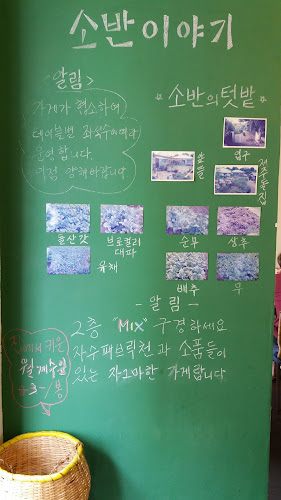 소반이야기
<알림>
가게가 협소하여
테이블번 좌석수에따라
운영합니다.
이점 양해바랍니다
소반의 텃밭
입구
돌산갓
브로컬리
대파
유채
순무
상추
배추
무
- 알림 -
2층 "MIX" 구경하세요
자수패브릭천과 소품들이
있는 자그마한 가게랍니다
키운